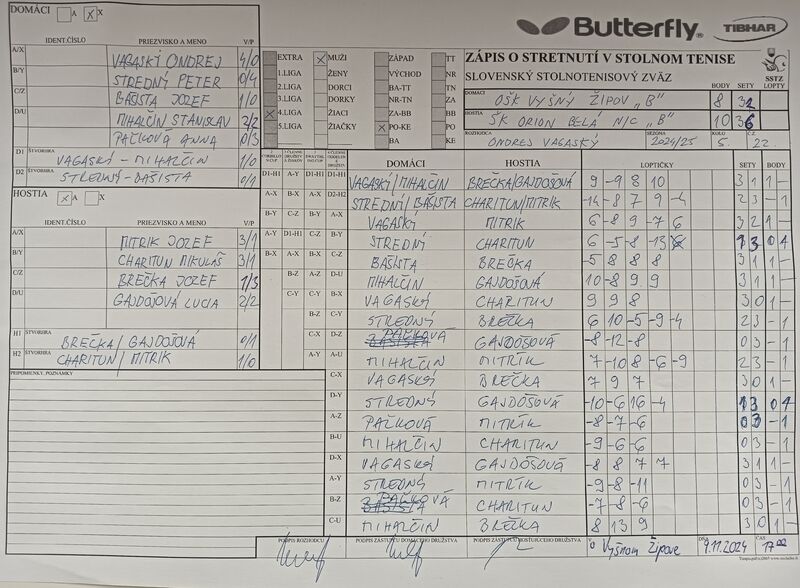 DOMÁCI A X
Butterfly TIBHAR
IDENT.ČÍSLO PRIEZVISKO A MENO V/P
A/X VAGASKÝ ONDREJ 4/0
B/Y STREDNÝ PETER 0/4
C/Z BAŠISTA JOZEF 1/0
D/U MIHALČIN STANISLAV 2/2
PAČKOVÁ ANNA 0/3
D1 ŠTVORHRA VAGASKÝ - MIHALČIN 1/0
D2 ŠTVORHRA STREDNÝ - BAŠISTA 0/1
HOSTIA A X
IDENT.ČÍSLO PRIEZVISKO A MENO V/P
A/X MITRIK JOZEF 3/1
B/Y CHARITUN MIKULÁŠ 3/1
C/Z BREČKA JOZEF 1/3
D/U GAJDOŠOVÁ LUCIA 2/2
H1 ŠTVORHRA BREČKA/GAJDOŠOVÁ 0/1
H2 ŠTVORHRA CHARITUN/MITRIK 1/0
PRIPOMIENKY, POZNÁMKY
EXTRA MUŽI ZÁPAD TT
1.LIGA ŽENY VÝCHOD NR
2.LIGA DORCI BA-TT TN
3.LIGA DORKY NR-TN ZA
4.LIGA ŽIACI ZA-BB BB
5.LIGA ŽIAČKY PO-KE PO
BA KE
ZÁPIS O STRETNUTÍ V STOLNOM TENISE
SLOVENSKÝ STOLNOTENISOVÝ ZVÄZ
SSTZ
BODY SETY LOPTY
DOMÁCI OŠK VYŠNÝ ŽIPOV "B" 8 32
HOSTIA ŠK ORION BELÁ N/C "B" 10 36
ROZHODCA ONDREJ VAGASKÝ SEZÓNA 2024/25 KOLO 5 Č.Z. 22
DOMÁCI HOSTIA LOPTIČKY SETY BODY
D1-H1 A-Y D1-H1 D1-H1 VAGASKÝ/MIHALČIN BREČKA/GAJDOŠOVÁ 9 -9 8 10 3 1 1 -
A-X B-X A-X D2-H2 STREDNÝ/BAŠISTA CHARITUN/MITRIK -14 -8 7 9 -4 2 3 - 1
B-Y C-Z B-Y A-X VAGASKÝ MITRIK 6 -8 9 -7 6 3 2 1 -
A-Y D1-H1 C-Z B-Y STREDNÝ CHARITUN 6 -5 -8 -13 1 3 0 1
B-X A-X B-X C-Z BAŠISTA BREČKA -5 8 8 8 3 1 1 -
B-Z A-Z D-U MIHALČIN GAJDOŠOVÁ 10 -8 9 9 3 1 1 -
C-Y C-Y B-X VAGASKÝ CHARITUN 9 9 8 3 0 1 -
B-Z C-Y STREDNÝ BREČKA 6 10 -5 -9 -4 2 3 - 1
C-X D-Z PAČKOVÁ GAJDOŠOVÁ -8 -12 -8 0 3 - 1
A-Y A-U MIHALČIN MITRÍK 7 -10 8 -6 -9 2 3 - 1
C-X VAGASKÝ BREČKA 7 9 7 3 0 1 -
D-Y STREDNÝ GAJDOŠOVÁ -10 -6 16 -4 1 3 0 1
A-Z PAČKOVÁ MITRÍK -8 -7 -6 0 3 - 1
B-U MIHALČIN CHARITUN -9 -6 -6 0 3 - 1
D-X VAGASKÝ GAJDOŠOVÁ -8 8 7 7 3 1 1 -
A-Y STREDNÝ MITRÍK -9 -8 -11 0 3 - 1
B-Z PAČKOVÁ CHARITUN -7 -8 -6 0 3 - 1
C-U MIHALČIN BREČKA 8 13 9 3 0 1 -
PODPIS ROZHODCU PODPIS ZÁSTUPCU DOMÁCEHO DRUŽSTVA PODPIS ZÁSTUPCU HOSŤUJÚCEHO DRUŽSTVA V Vyšnom Žipove DŇA 9.11.2024 ČAS 17:00